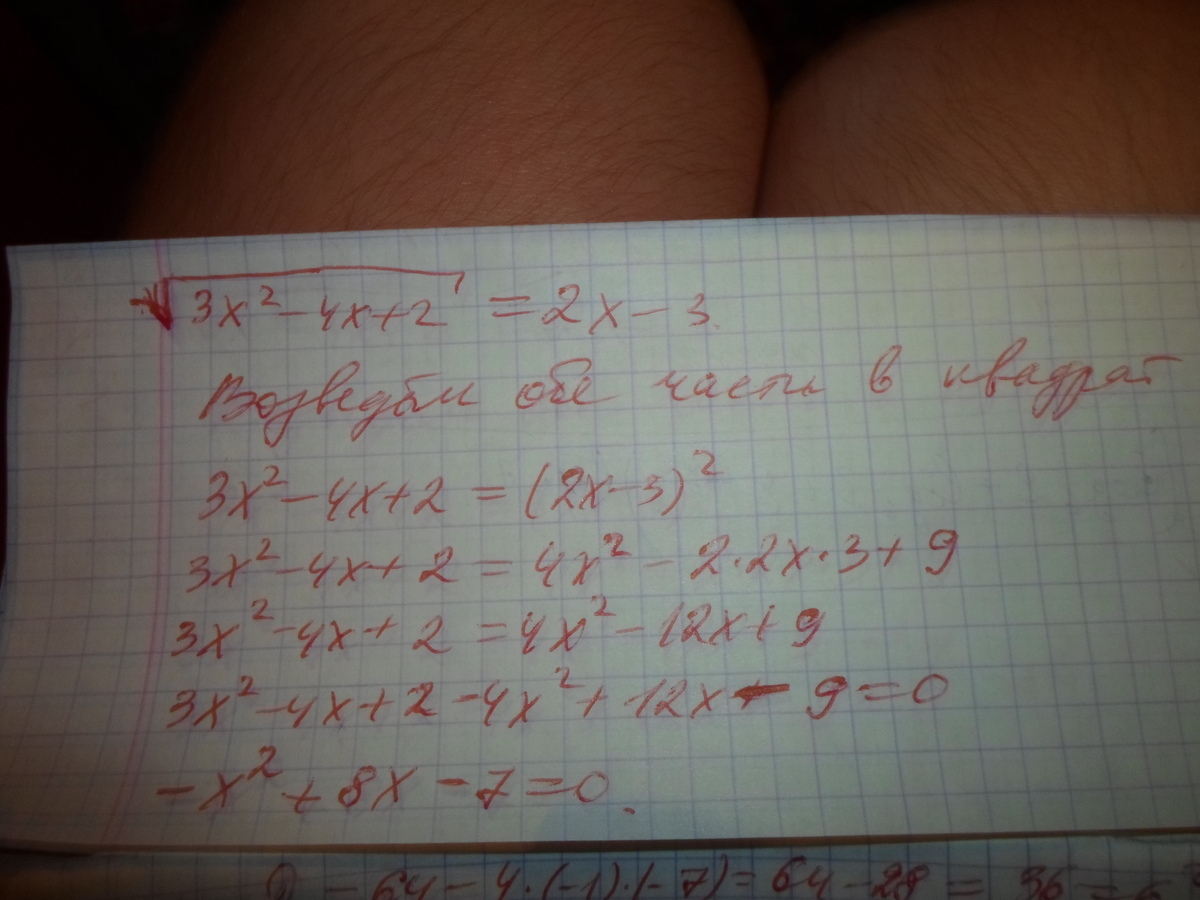 √3x²-4x+2 = 2x-3.
Возведём обе части в квадрат
3x²-4x+2 = (2x-3)²
3x²-4x+2 = 4x² - 2·2x·3+9
3x²-4x+2 = 4x²-12x+9
3x²-4x+2-4x²+12x-9=0
-x²+8x-7=0.
D = 64-4·(-1)·(-7)=64-28=36=6²